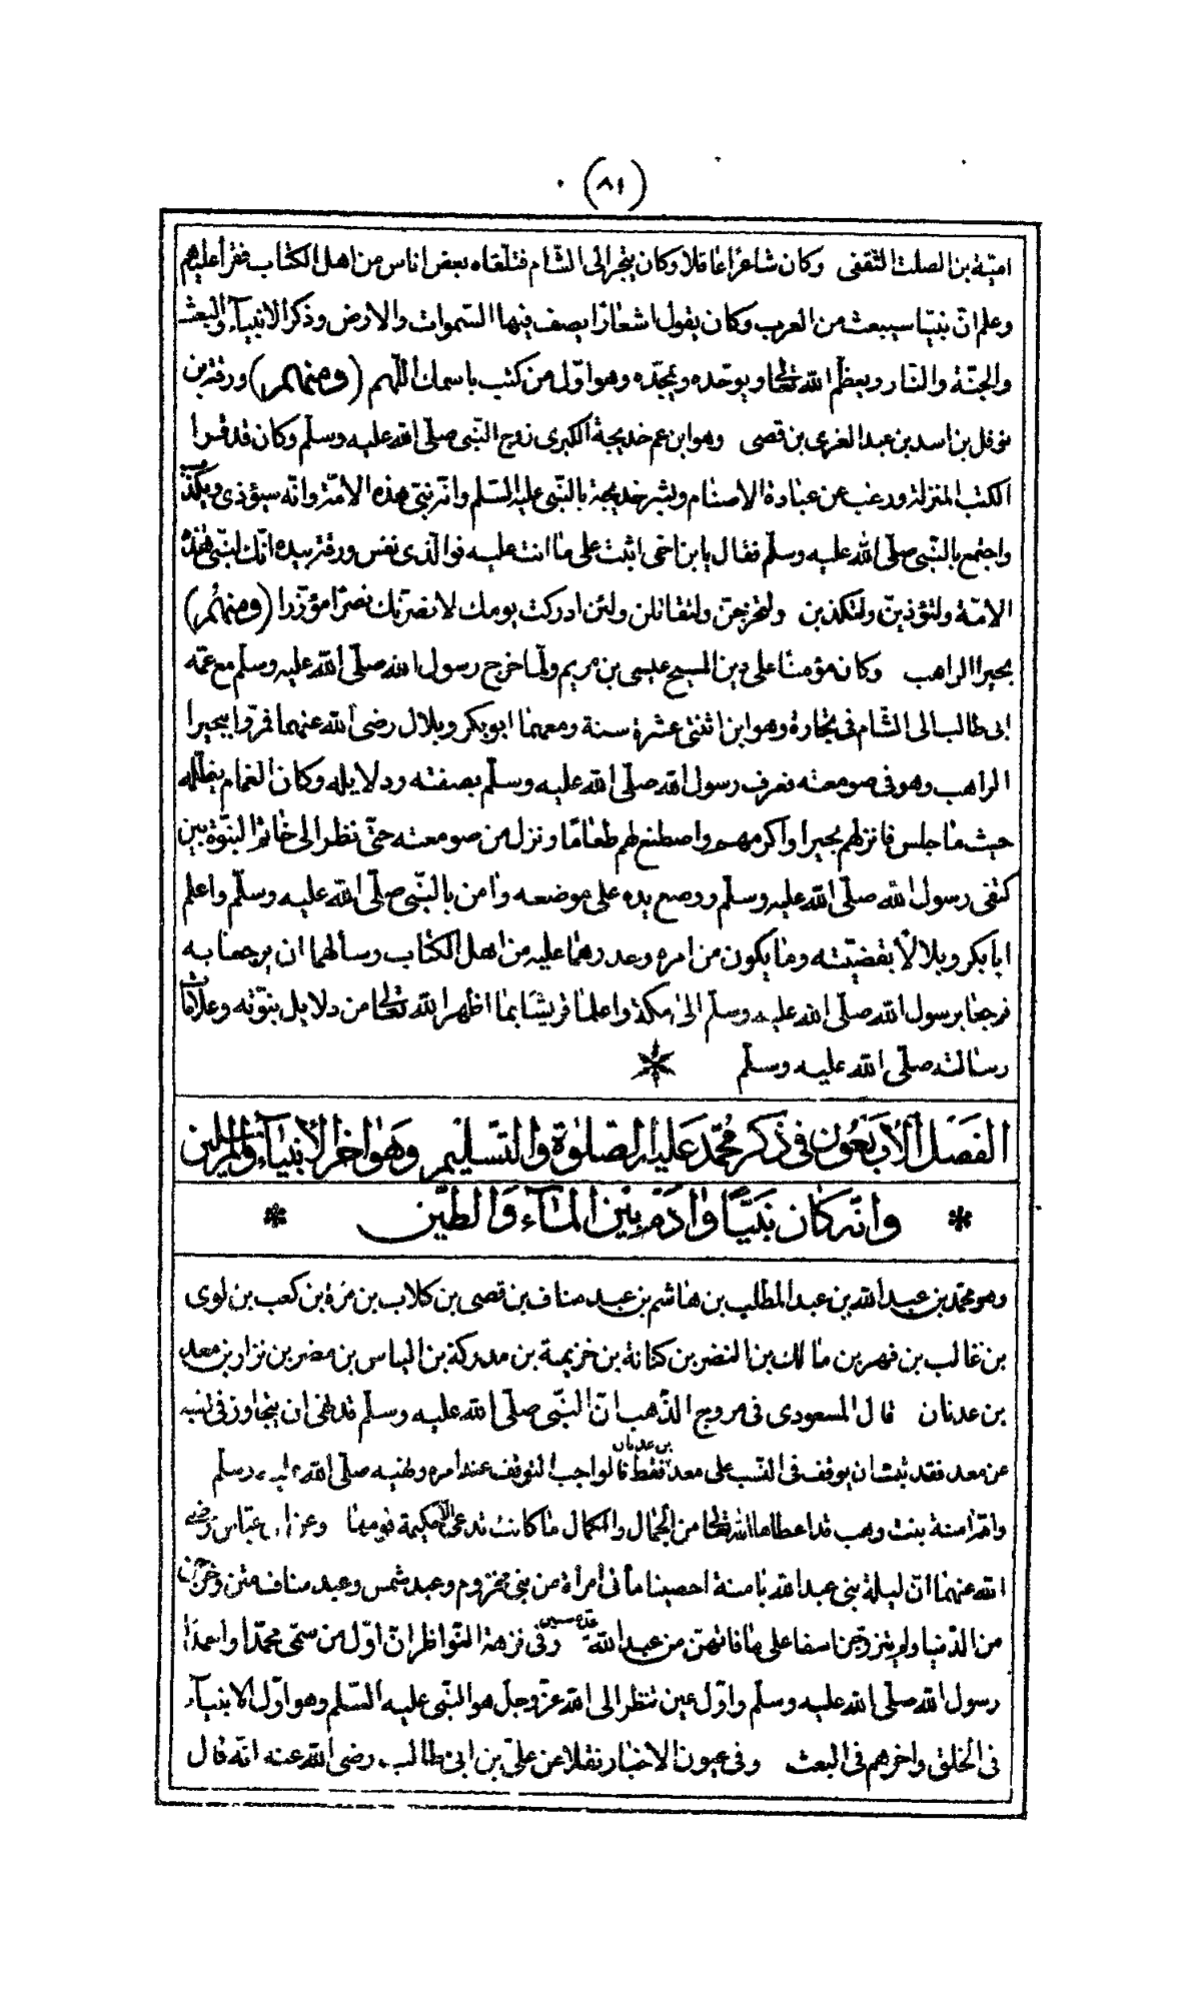 (٨١)
امية بن الصلت الثقفى وكان شاعرا عاقلا وكان يتجر الى الشام فتلقاه بعض اناس من اهل الكتاب فقرأ عليهم
وعلم انّ نبيّا سيبعث من العرب وكان يقول اشعارا يصف فيها السموات والارض وذكر الانبيآء والبعث
والجنّة والنار ويعظّم الله تعالى ويوحّده ويمجّده وهو اوّل من كتب باسمك اللّهم (ومنهم) ورقة بن
نوفل بن اسد بن عبد العزى بن قصى وهو ابن عم خديجة الكبرى زوج النّبى صلّى الله عليه وسلّم وكان قد قرأ
الكتب المنزلة ورغب عن عبادة الاصنام وبشر خديجة بالنّبى عليه السّلم وانّه نبىّ هذه الامّة وانّه سيؤذى ويكذّب
واجتمع بالنّبى صلّى الله عليه وسلّم فقال يا بن اخى اثبت على ما انت عليه فوالّذى نفس ورقة بيده انّك لنبّى هذه
الامّة ولتؤذينّ ولتكذبن ولتخرجنّ ولتقاتلن ولئن ادركت يومك لانصرنّك نصرًا مؤزّرا (ومنهم)
بحيرا الراهب وكان مؤمنًا على دين المسيح عيسى بن مريم ولما خرج رسول الله صلّى الله عليه وسلّم مع عمّه
ابى طالب الى الشّام فى تجارة وهو ابن اثنتى عشرة سنة ومعهما ابو بكر وبلال رضى الله عنهما فمرّوا ببحيرا
الراهب وهو فى صومعته فعرف رسول الله صلّى الله عليه وسلّم بصفته ودلايله وكان الغمام يظلّله
حيث ما جلس فانزلهم بحيرا واكرمهم واصطنع لهم طعامًا ونزل من صومعته حتّى نظر الى خاتم النبوّة بين
كتفى رسول الله صلّى الله عليه وسلّم ووضع يده على موضعه وامن بالنّبى صلّى الله عليه وسلّم واعلم
ابا بكر وبلالًا بقضيّته وما يكون من امره وحذرهما عليه من اهل الكتاب وسألهما ان يرجعا به
فرجعا برسول الله صلّى الله عليه وسلّم الى مكة واعلما قريشًا بما اظهر الله تعالى من دلايل نبوّته وعلامات
رسالته صلّى الله عليه وسلّم
الفَصْل الأربَعُون فى ذكر مُحمّد عَليه الصّلوٰة والتّسْليم وهَو اخر الأنبيَآء والمرسلين
وانّه كان نَبيًّا واٰدَمُ بَيْن المَآء وَالطّين
وهو محمّد بن عبد الله بن عبد المطّلب بن هاشم بن عبد مناف بن قصى بن كلاب بن مرّة بن كعب بن لوى
بن غالب بن فهر بن مالك بن النضر بن كنانة بن خزيمة بن مدركة بن الياس بن مضر بن نزار بن معد
بن عدنان قال المسعودى فى مروج الذّهب انّ النّبّى صلّى الله عليه وسلّم قد نهى ان يتجاوز فى نسبه
عن معد فقد ثبت ان يوقف فى النّسب على معد بن عدنان فقط فالواجب التوقف عند امره ونهيه صلّى الله عليه وسلّم
وامّه امنة بنت وهب قد اعطاها الله تعالى من الجمال والكمال ما كانت تدعى الحكيمة قومها وعن ابن عبّاس رضى
الله عنهما انّ ليلة بنى عبد الله بامنة احصينا مأتى امرأة من بنى مخزوم وعبد شمس وعبد مناف متن وخرجن
من الدّنيا ولم يتزوجن اسفا على ما فاتهن من عبد الله وفى نزهة النّواظر انّ اوّل من سمّى محمّدا واحمدا
رسول الله صلّى الله عليه وسلّم واوّل عين تنظر الى الله عزّ وجلّ هو النّبى عليه السّلم وهو اوّل الانبيآء
فى الخلق واخرهم فى البعث وفى عيون الاخبار نقلا عن علىّ بن ابى طالب رضى الله عنه انّه قال